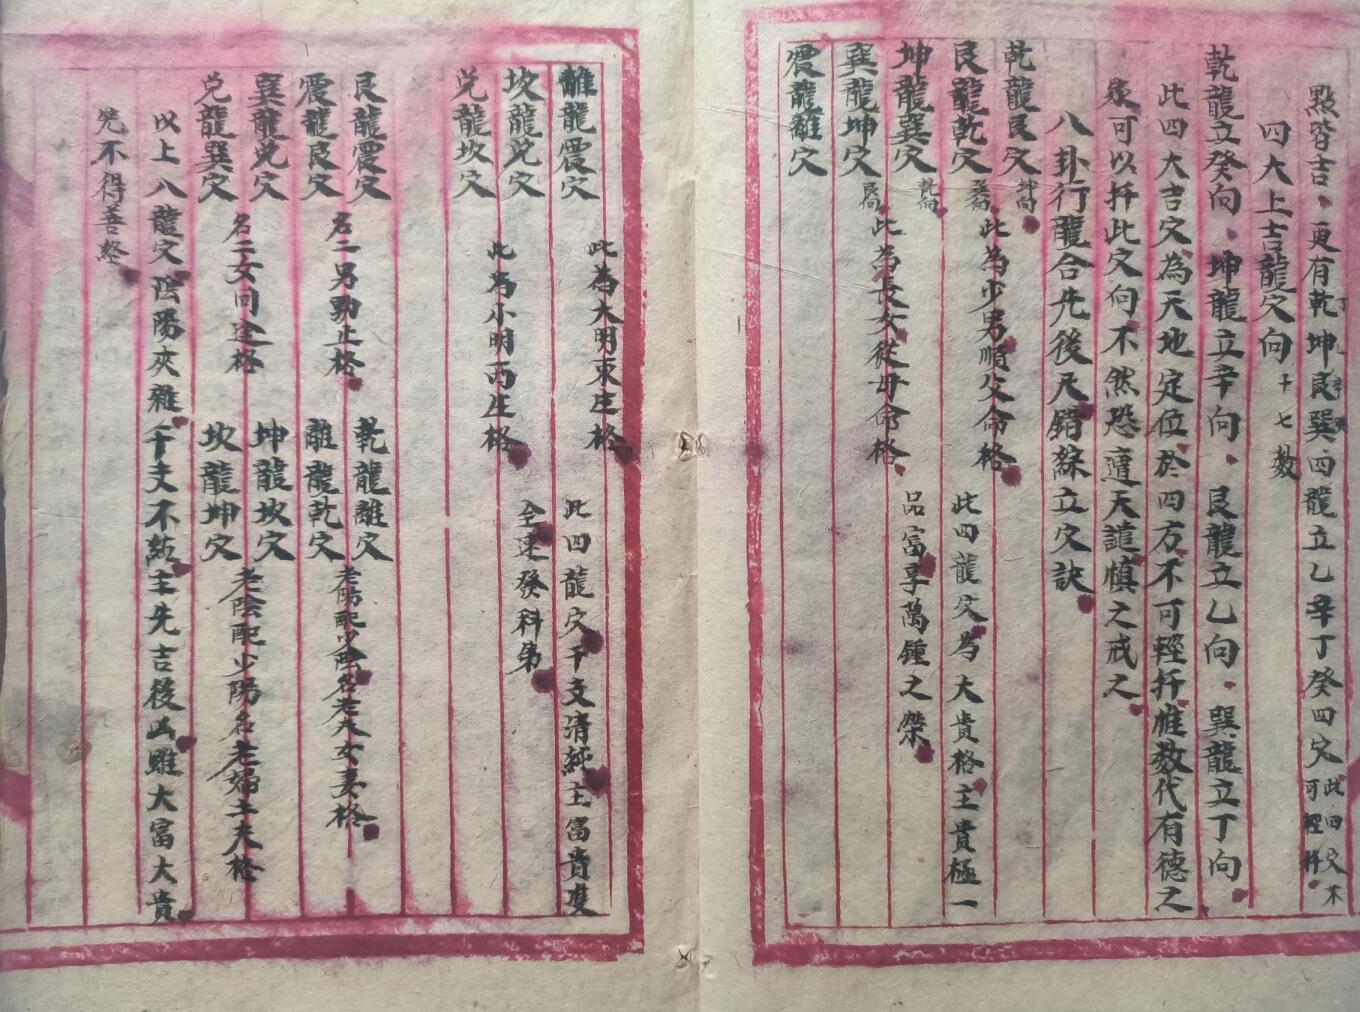 點皆吉更有乾坤艮巽四龍立乙辛丁癸四穴此四穴不可輕扦
四大上吉龍穴向
乾龍立癸向坤龍立辛向艮龍立乙向巽龍立丁向
此四大吉穴為天地定位於四方不可輕扦惟数代有德之
家可以扦此穴向不然恐遭天譴慎之戒之
八卦行龍合先後天錯綜立穴訣
乾龍艮穴坤向
艮龍乾穴巽向
此為少男順父命格
坤龍巽穴乾向
巽龍坤穴艮向
此為長女從母命格
此四龍穴為大貴格主貴極一
品富享萬鍾之榮
震龍離穴
離龍震穴
此為大明東庄格
坎龍兑穴
兑龍坎穴
此為小明西庄格
此四龍穴干支清純主富貴雙
全速發科弟
艮龍震穴
震龍艮穴
名二男動止格
巽龍兑穴
兑龍巽穴
名二女同途格
乾龍離穴
離龍乾穴
老陽配少陰名老夫女妻格
坤龍坎穴
坎龍坤穴
老陰配少陽名老婦士夫格
以上八龍穴陰陽夾雜干支不純主先吉後凶雖大富大貴
究不得善終